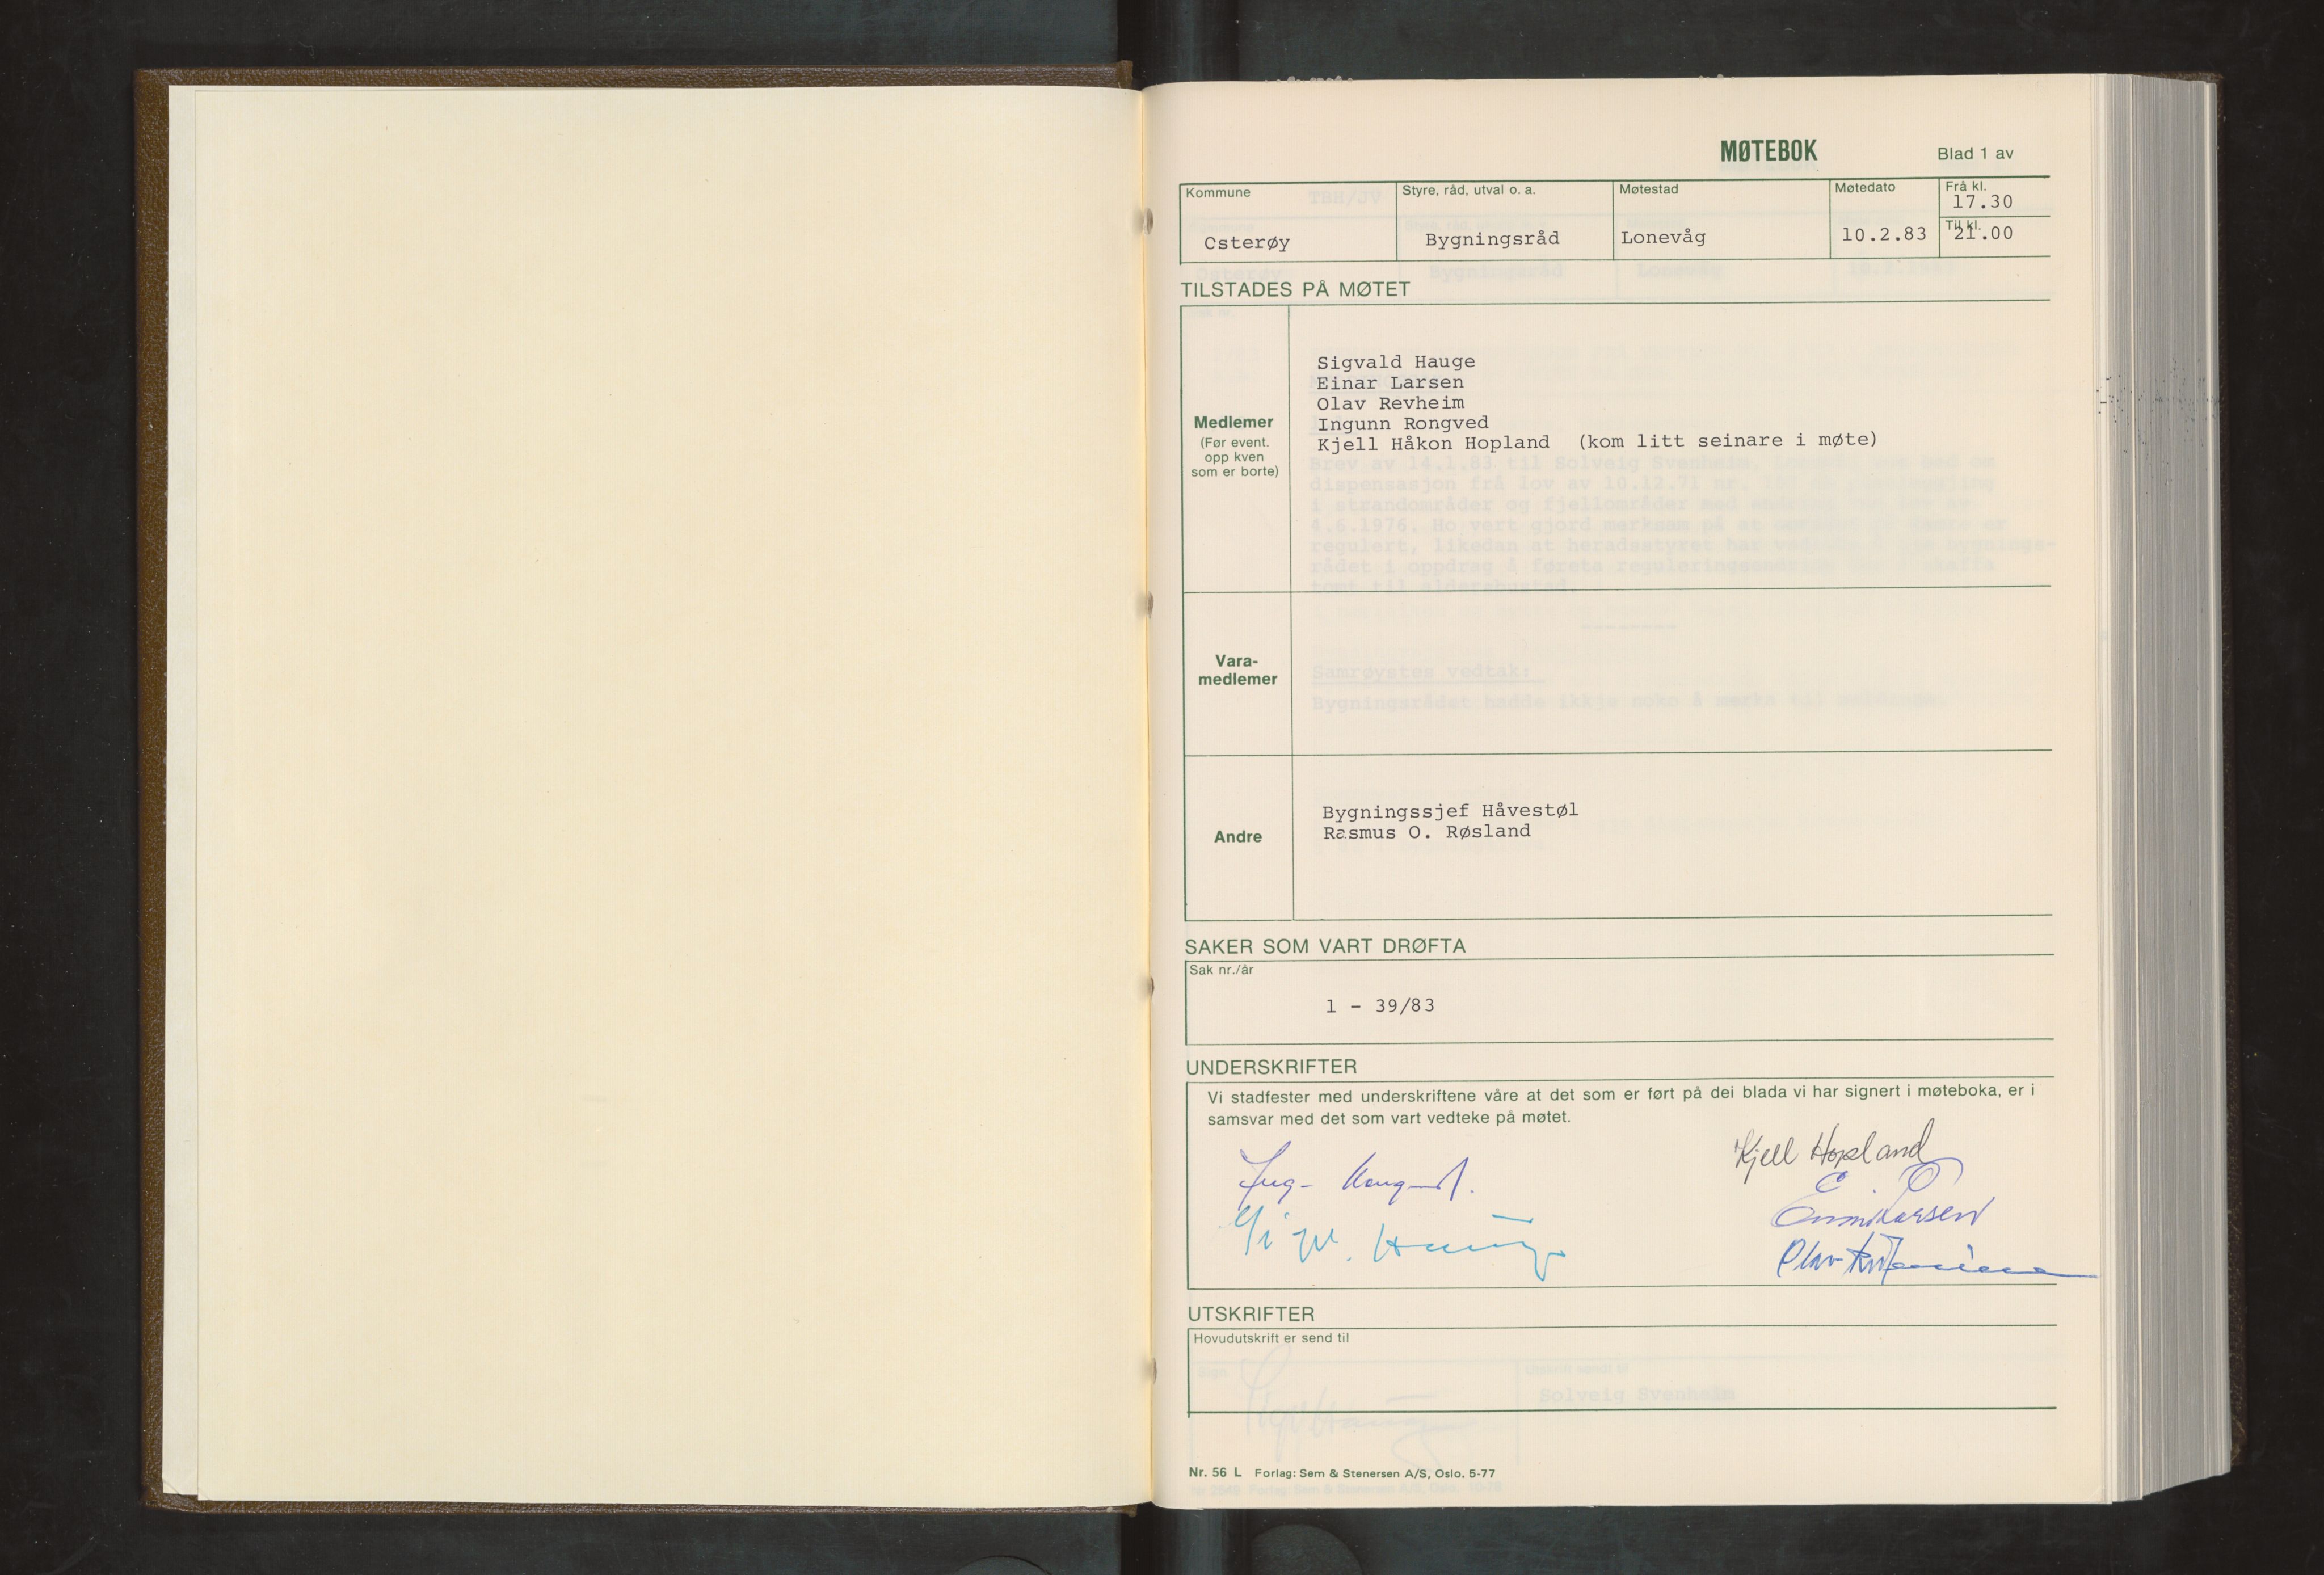 MØTEBOK
Blad 1 av
Kommune
Styre, råd, utval o. a.
Møtestad
Møtedato
Frå kl.
17.30
Osterøy
Bygningsråd
Lonevåg
10.2.83
Til kl.
21.00
TILSTADES PÅ MØTET
Medlemer
(Før event.
opp kven
som er borte)
Sigvald Hauge
Einar Larsen
Olav Revheim
Ingunn Rongved
Kjell Håkon Hopland (kom litt seinare i møte)
Vara-
medlemer
Andre
Bygningssjef Håvestøl
Rasmus O. Røsland
SAKER SOM VART DRØFTA
Sak nr./år
1 - 39/83
UNDERSKRIFTER
Vi stadfester med underskriftene våre at det som er ført på dei blada vi har signert i møteboka, er i
samsvar med det som vart vedteke på møtet.
Kjell Hopland
Einar Larsen
Sigv. Hauge
Olav Revheim
UTSKRIFTER
Hovudutskrift er send til
Nr. 56 L Forlag: Sem & Stenersen A/S, Oslo. 5-77